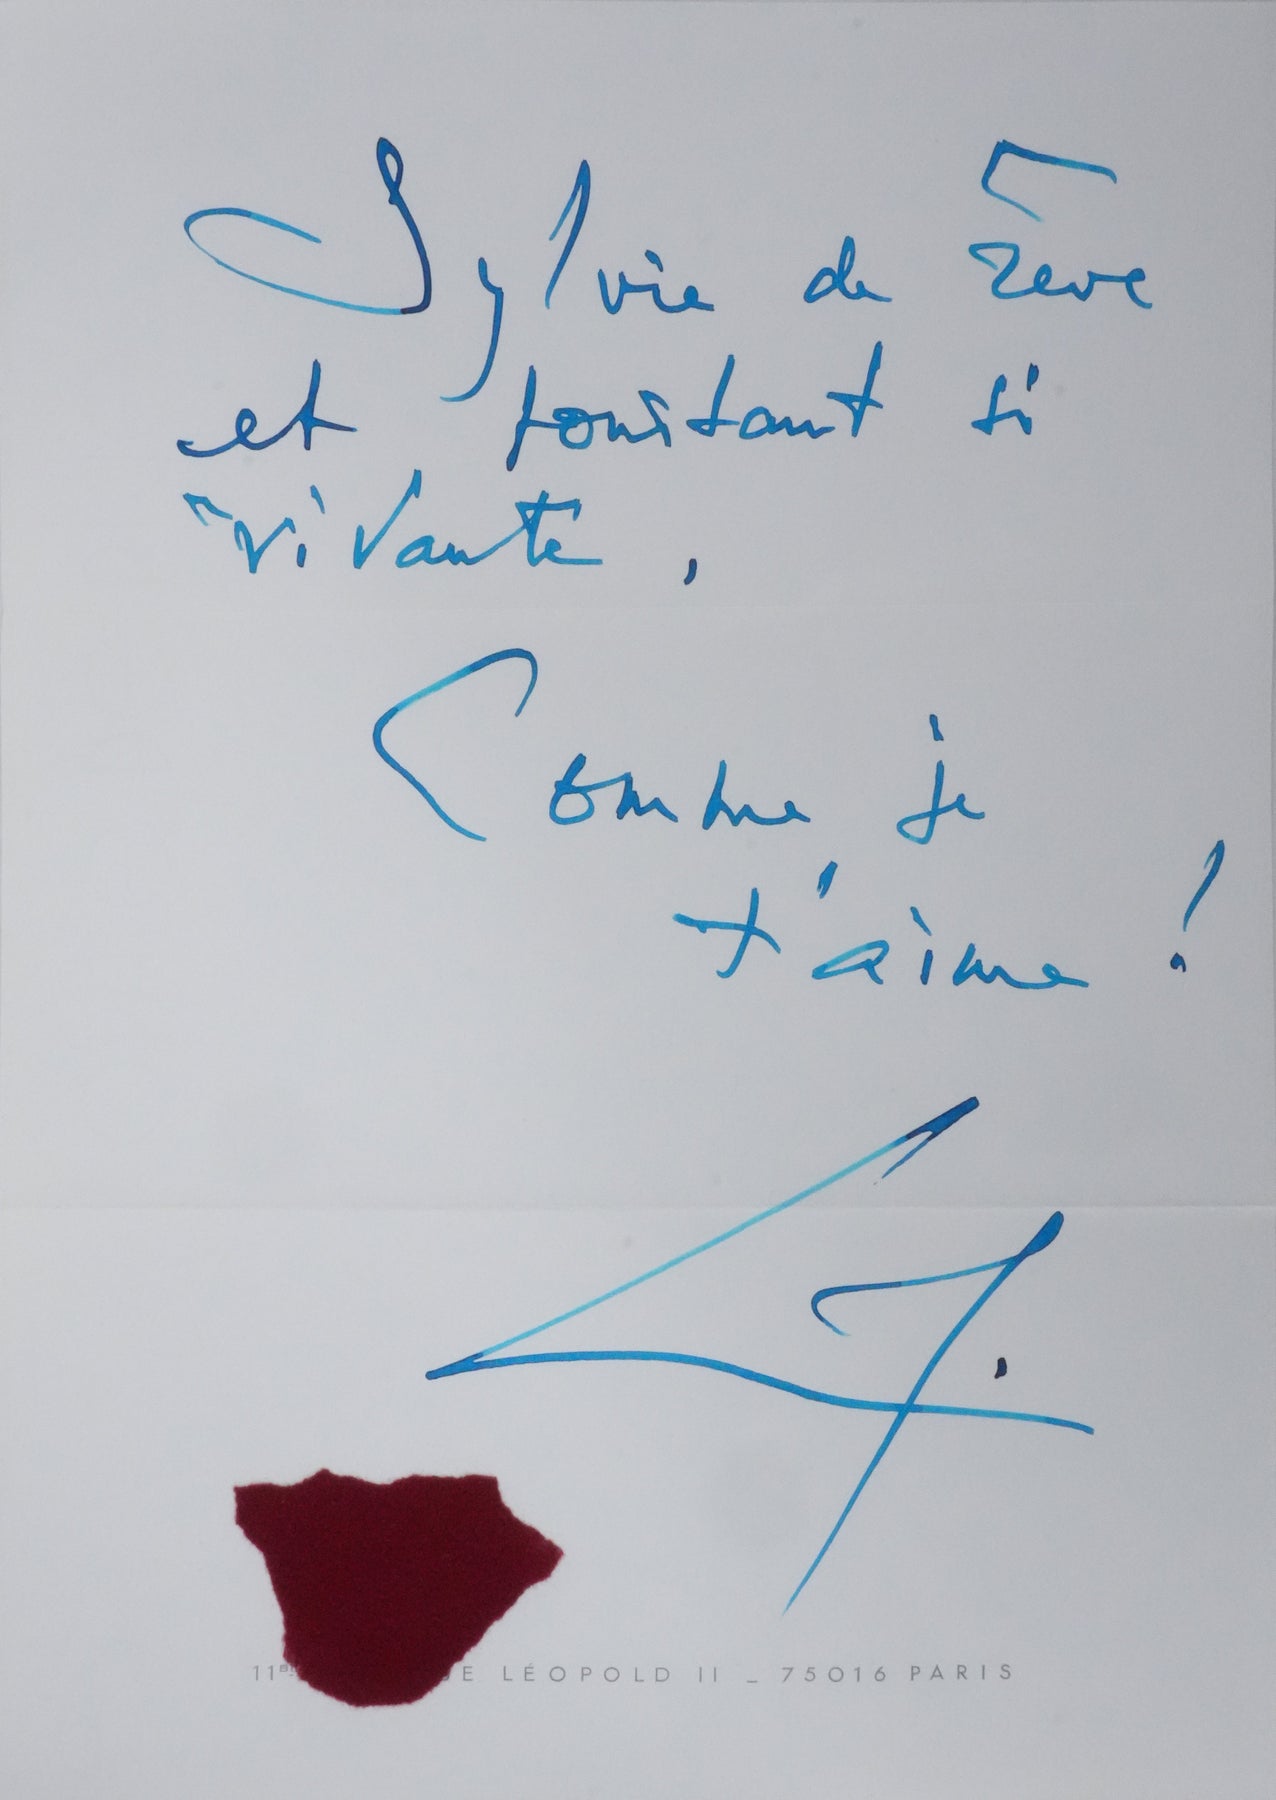 Sylvie de rêve
et pourtant si
vivante,
Comme je
t'aime !
11BIS UE LÉOPOLD II _ 75016 PARIS